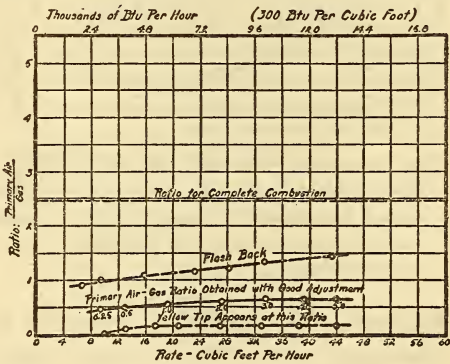 Thousands of Btu Per Hour (300 Btu Per Cubic Foot)
0 2.4 4.8 7.2 9.6 12.0 14.4 16.8
5
4
3
2
1
0
Ratio: Primary Air / Gas
Ratio for Complete Combustion
Flash Back
Primary Air-Gas Ratio Obtained with Good Adjustment
0.25 0.6
Yellow Tip Appears at this Ratio
0 4 8 12 16 20 24 28 32 36 40 44 48 52 56 60
Rate - Cubic Feet Per Hour